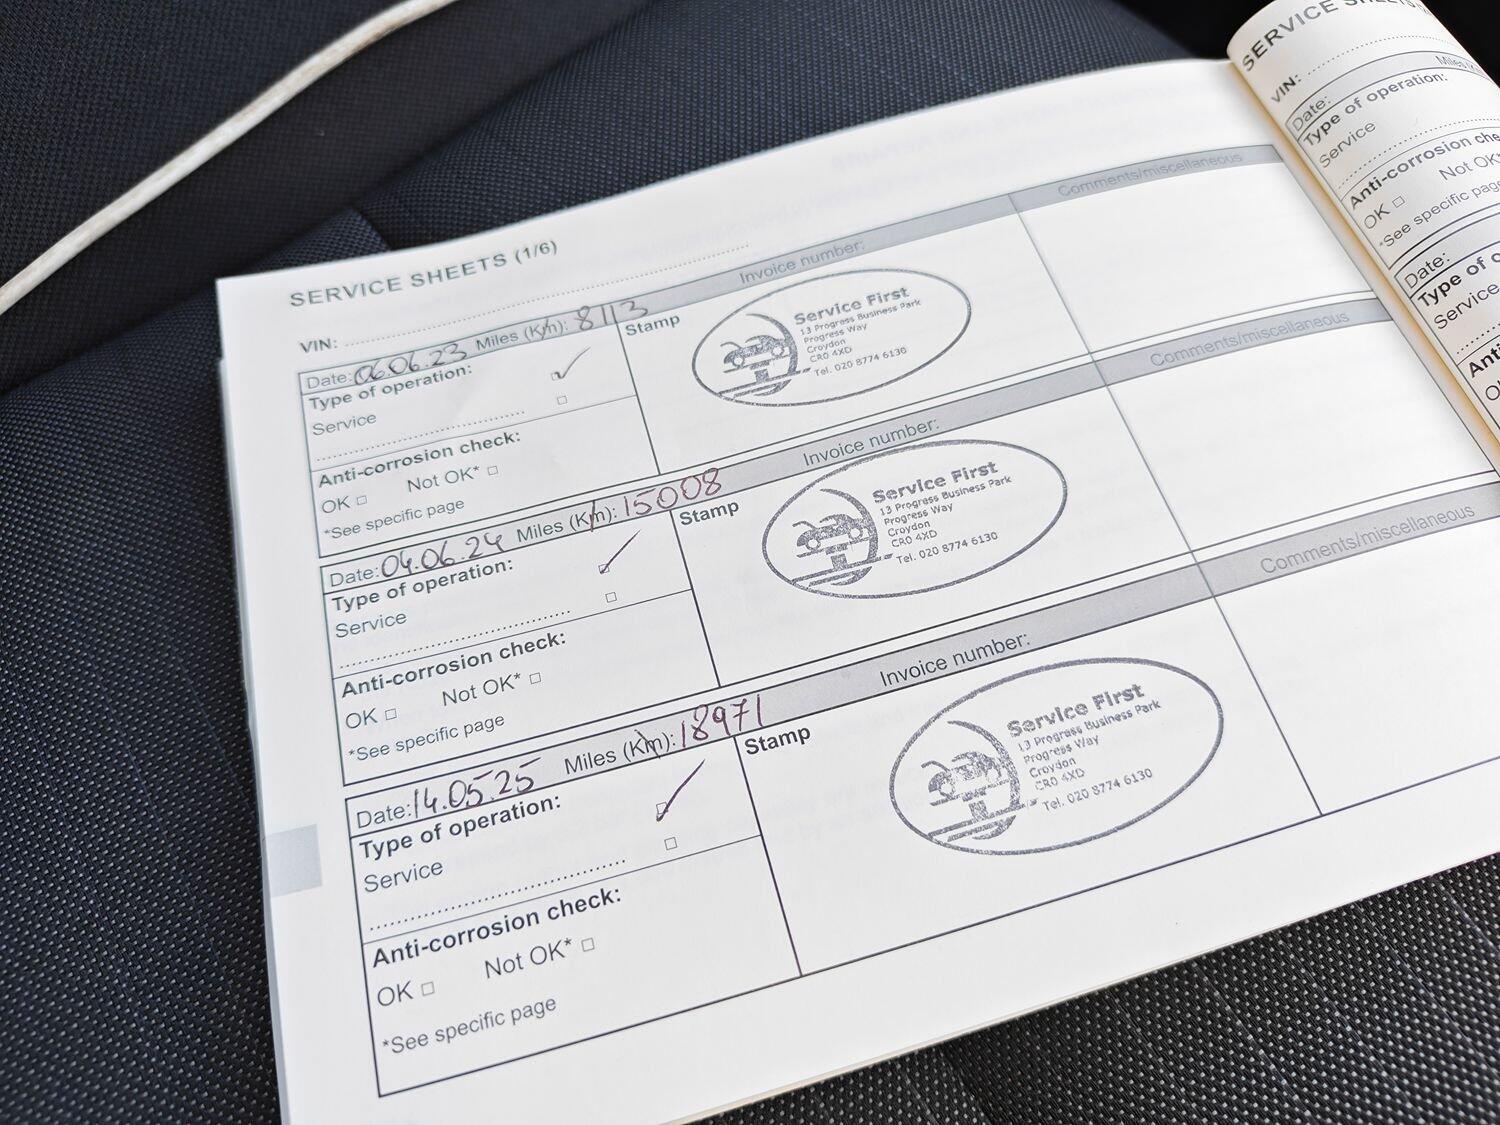 SERVICE SHEETS (1/6)
VIN:
Date: 06.06.23 Miles (Km): 8113 Invoice number: Comments/miscellaneous
Type of operation:
Service
Anti-corrosion check:
OK □ Not OK* □
*See specific page
Stamp
Service First
13 Progress Business Park
Progress Way
Croydon
CR0 4XD
Tel. 020 8774 6130
Date: 04.06.24 Miles (Km): 15008 Invoice number: Comments/miscellaneous
Type of operation:
Service
Anti-corrosion check:
OK □ Not OK* □
*See specific page
Stamp
Service First
13 Progress Business Park
Progress Way
Croydon
CR0 4XD
Tel. 020 8774 6130
Date: 14.05.25 Miles (Km): 18971 Invoice number: Comments/miscellaneous
Type of operation:
Service
Anti-corrosion check:
OK □ Not OK* □
*See specific page
Stamp
Service First
13 Progress Business Park
Progress Way
Croydon
CR0 4XD
Tel. 020 8774 6130
SERVICE SHEETS
VIN:
Date: Miles
Type of operation:
Service
Anti-corrosion che
OK □ Not OK
*See specific page
Date:
Type of o
Service
Anti